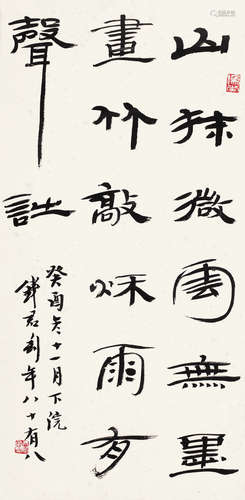 山抹微雲無墨
畫竹敲秌雨有
聲詩
癸酉冬十一月下浣
錢君匋年八十有八